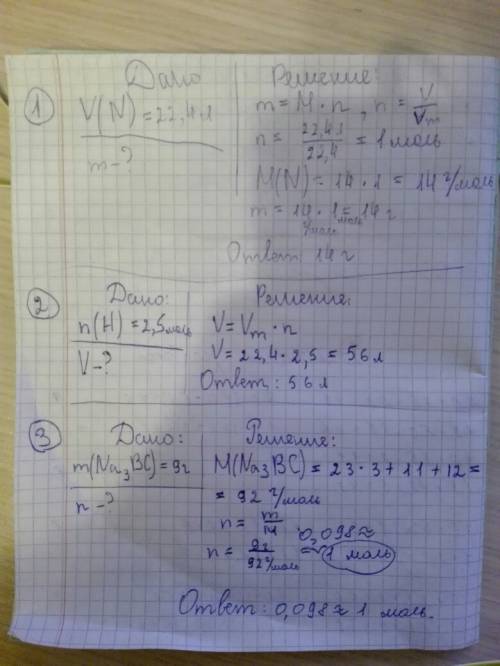 1
Дано
V(N) = 22,4 л
m - ?
Решение:
m = M · n , n = V/Vm
n = 22,4 л / 22,4 = 1 моль
M(N) = 14 · 1 = 14 г/моль
m = 14 г/моль · 1 моль = 14 г
Ответ: 14 г
2
Дано:
n(H) = 2,5 моль
V - ?
Решение:
V = Vm · n
V = 22,4 · 2,5 = 56 л
Ответ: 56 л
3
Дано:
m(Na3BC) = 9г
n - ?
Решение:
M(Na3BC) = 23 · 3 + 11 + 12 =
= 92 г/моль
n = m/M
n = 9г / 92 г/моль = 0,098 ≈ 1 моль
Ответ: 0,098 ≈ 1 моль.